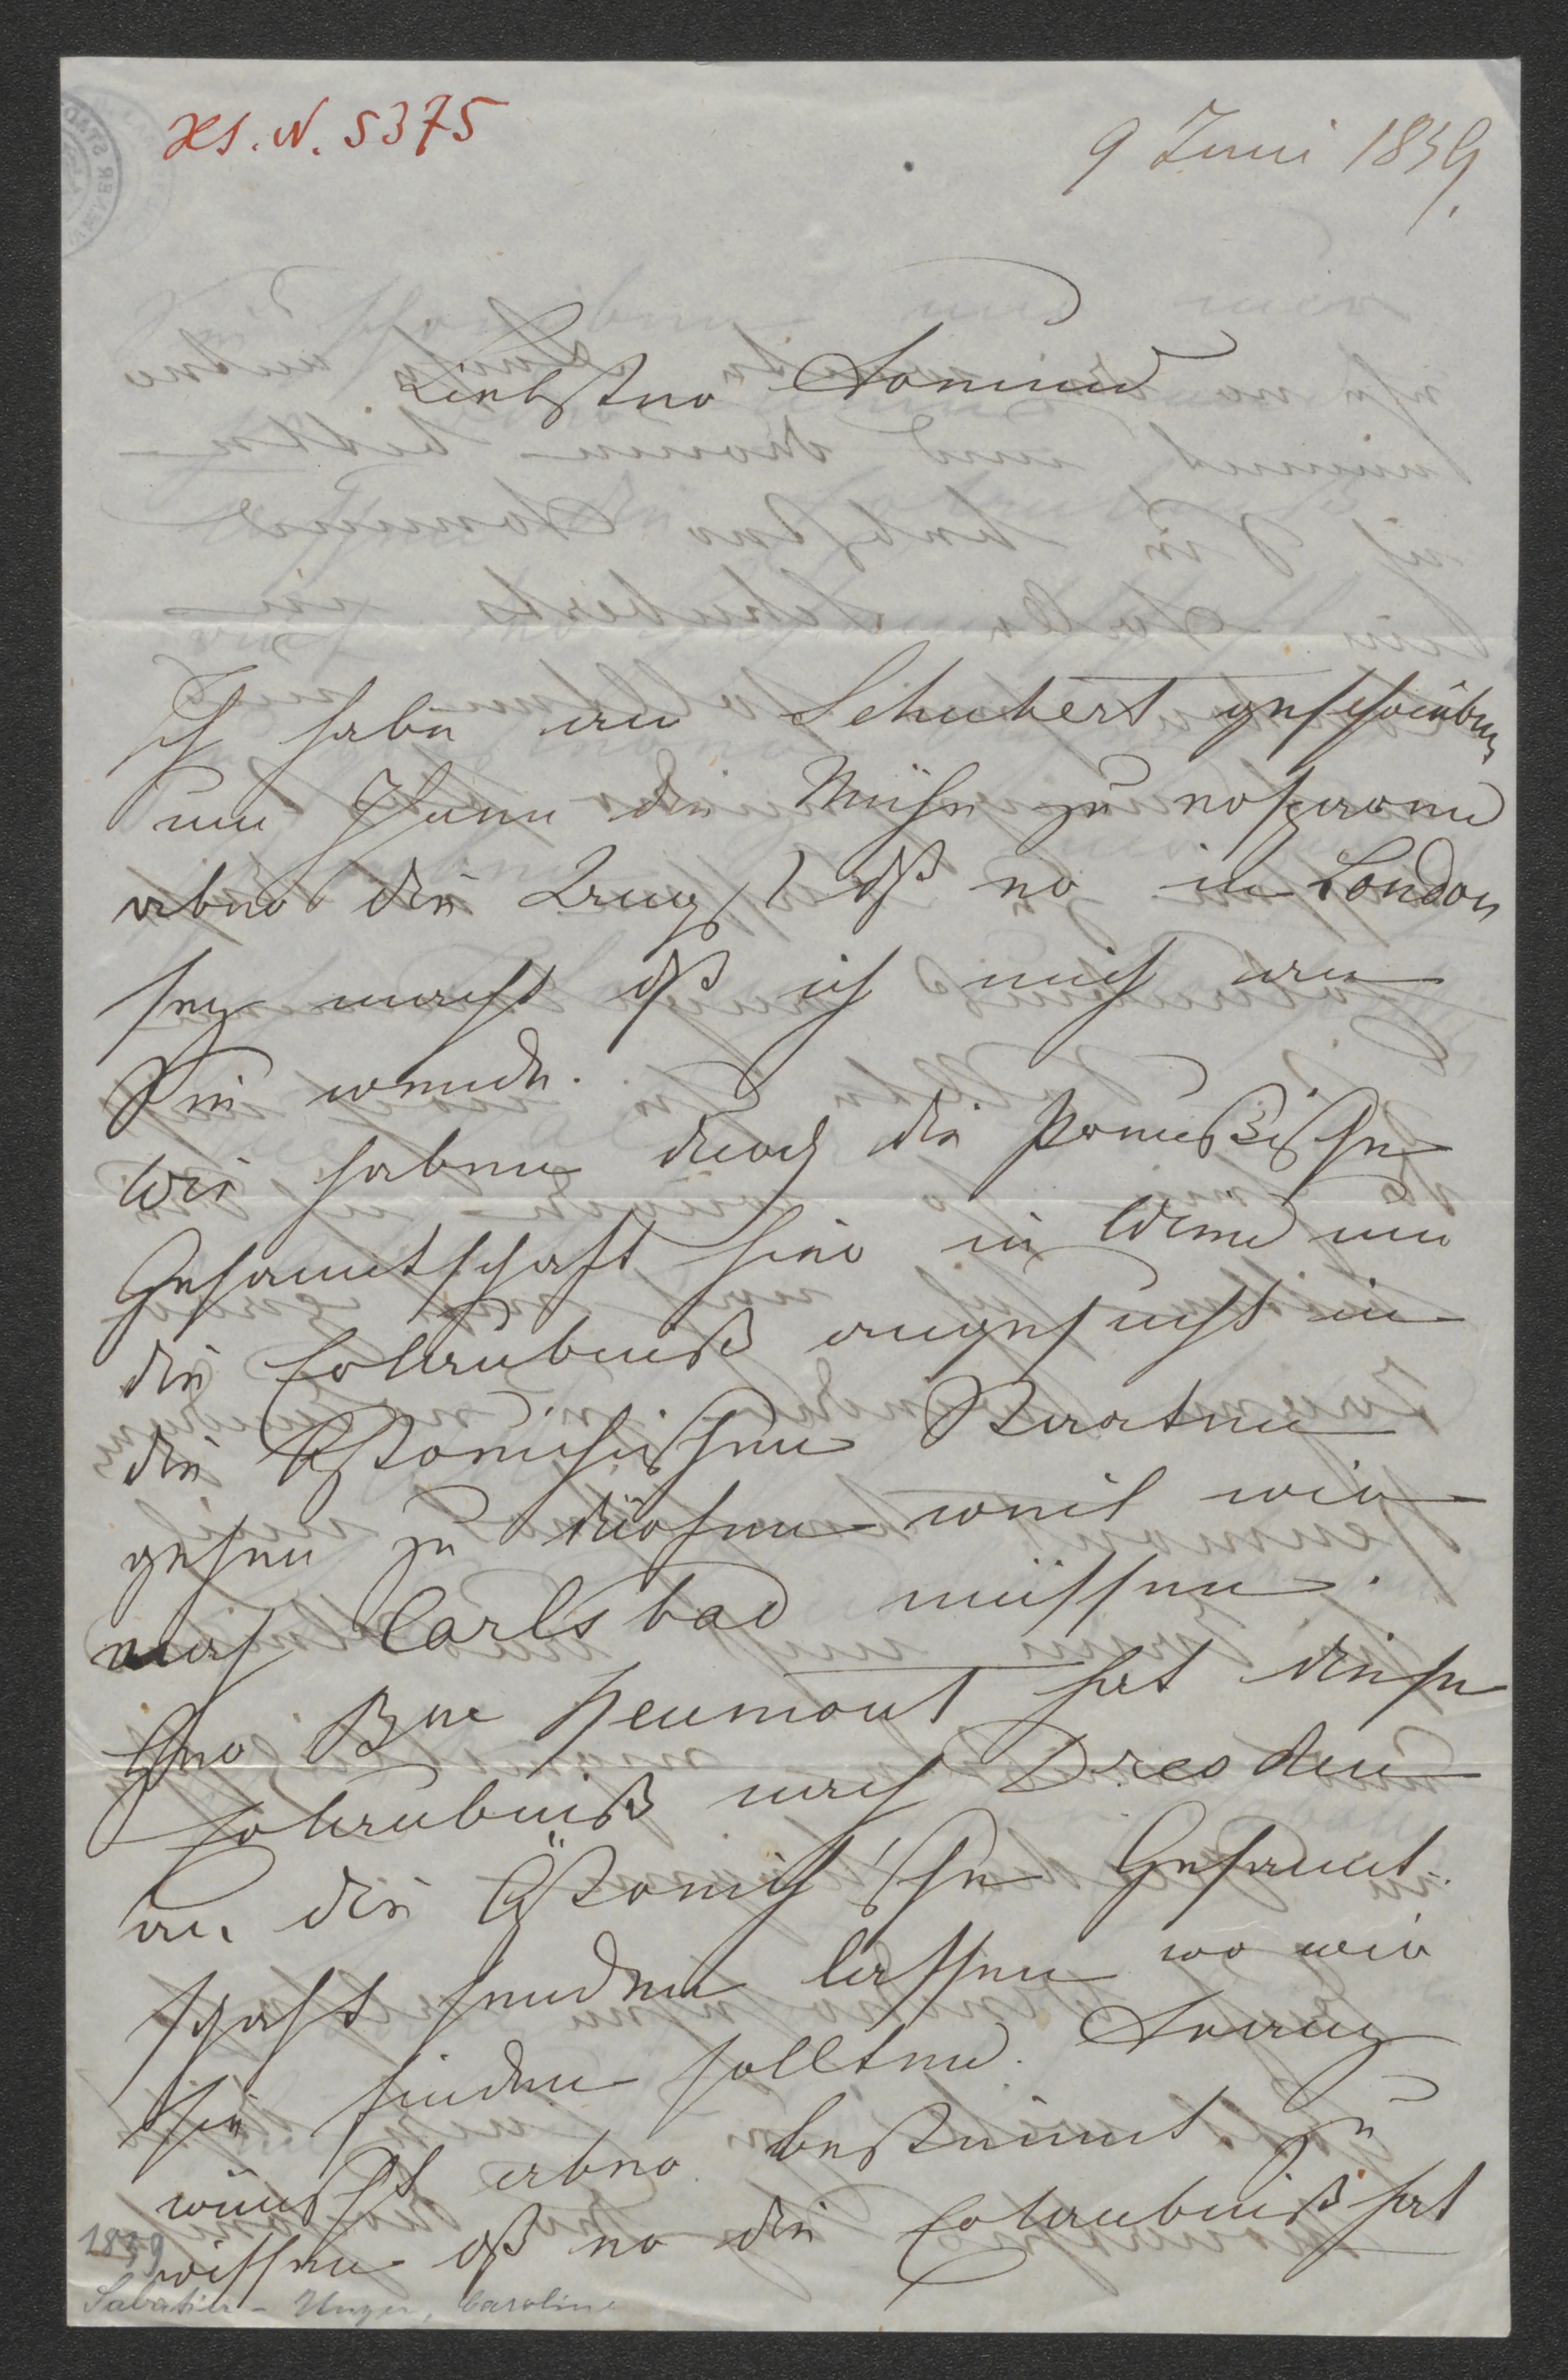 HS. N. 5375
9 Juni 1859.
Liebster Freund
Ich habe an Schubert geschrieben
um Ihnen die Mühe zu ersparen
aber die Angst dß er in London
sey macht dß ich mich an
Sie wende.
Wir haben durch die Preußische
Gesandtschaft hier in Wien um
die Erlaubniß angesucht in
die Östreichischen Staaten
gehen zu dürfen weil wir
nach Carlsbad müssen.
Herr Reumont hat diese
Erlaubniß nach Dresden
an die Östreich'sche Gesandt-
schaft senden lassen wo wir
sie finden sollten. Franz
wünscht aber bestimmt zu
wissen dß er die Erlaubniß hat
1859
Sabatier-Unger, Caroline